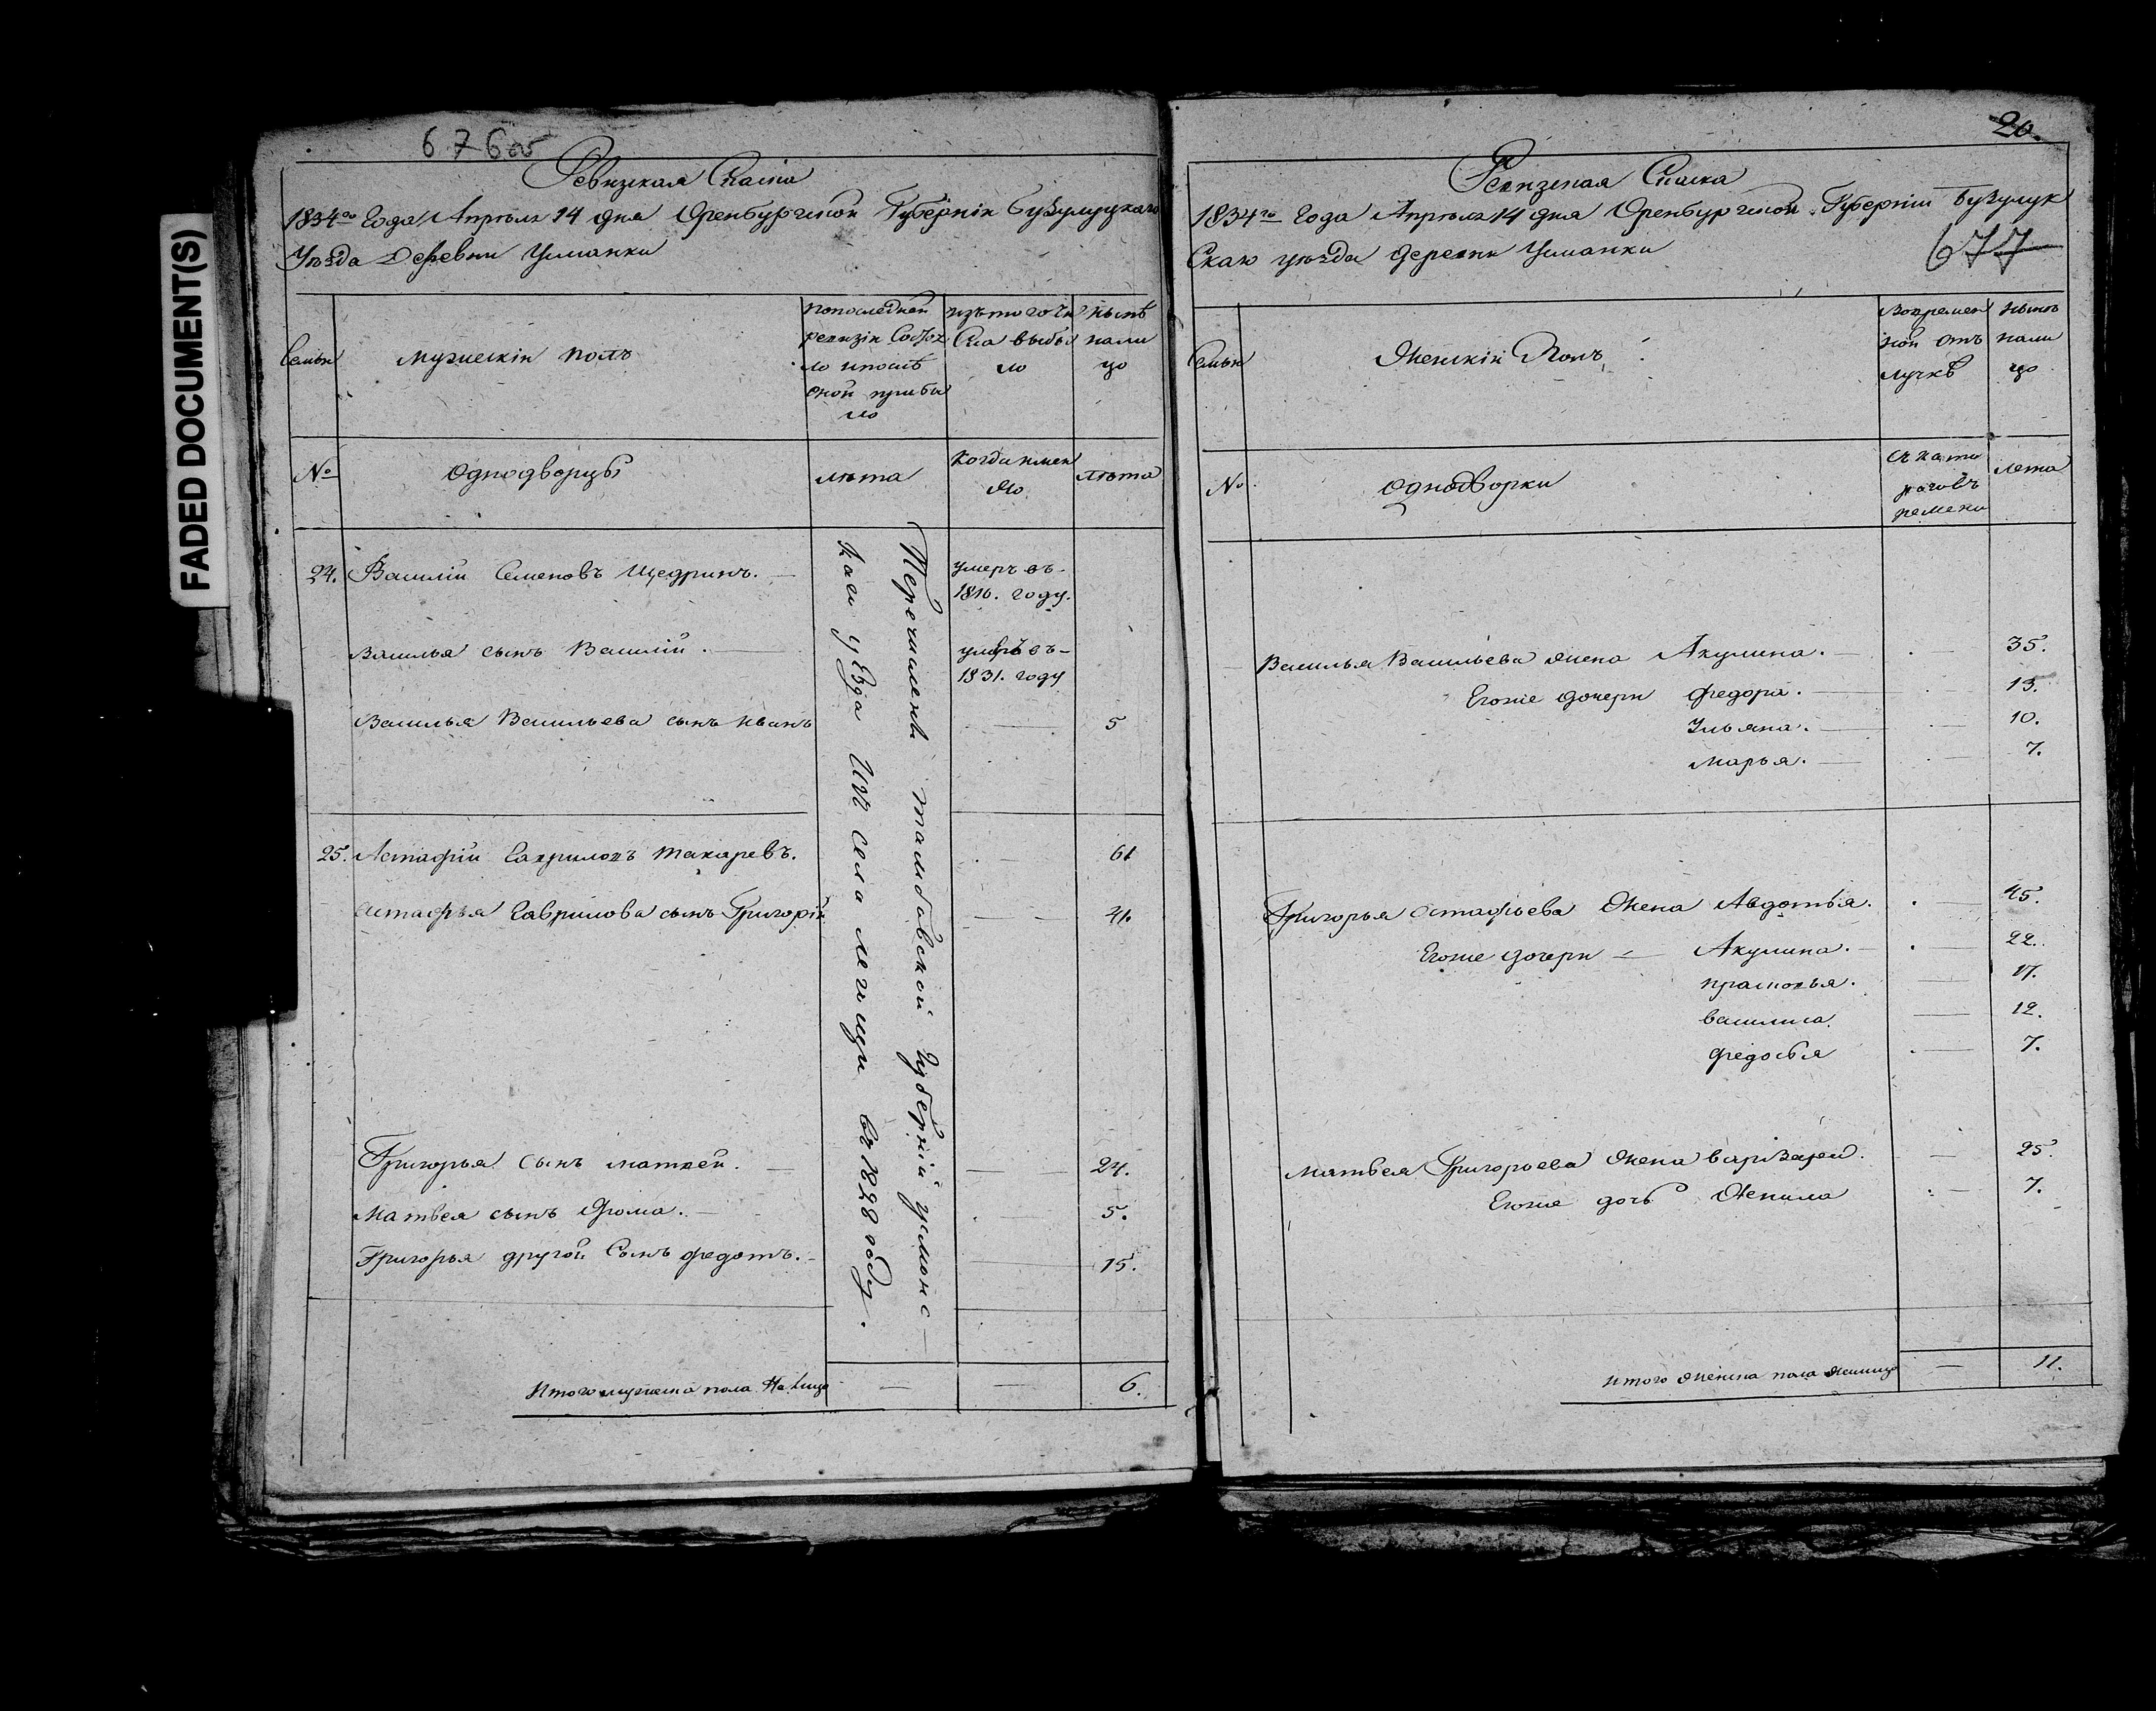 FADED DOCUMENT(S)
676 об
Ревизская Скаска
1834го Года Апреля 14 дня Оренбургской Губернiи Бузулуцкаго
Уѣзда Деревни Усманки
Семьи
Мужескiй полъ
попоследней
ревизiи Состоя
ло ипослѣ
оной прибы
ло
изътого чи
сла выбы
ло
нынѣ
нали
цо
№
Однодворцы
лѣта
Когда имен
но
лѣта
24. Василiй Семеновъ Щедринъ.
умеръ въ
1816. году.
Василья сынъ Василiй.
умеръ въ
1831. году
Василья Васильева сынъ Иванъ 5
25. Астафiй Гавриловъ Токаревъ. 61
Астафья Гаврилова сынъ Григорiй 41.
Григорья сынъ Матвей. 24.
Матвея сынъ Фома. 5.
Григорья другой Сынъ федотъ. 15.
Перечислены тамбовской губернiи усманс
каго уезда изъ села мечищи въ 1828 году.
Итого мужеска пола На Лицо 6.
20.
Ревизская Скаска
1834го Года Апреля 14 дня Оренбургской Губернiи Бузулук
Скаго уѣзда деревни Усманки
677
Семьи
Женскiй Полъ
Вовремен
ной отъ
лучкѣ
нынѣ
нали
цо
№
Однодворки
съ кото
раговъ
ремени
лета
Василья Васильева жена Акулина. 35.
Егоже дочери Федора. 13.
Ульяна. 10.
Марья. 7.
Григорья Остафьева Жена Авдотья. 45.
Егоже дочери Акулина. 22.
прасковья. 17.
василиса. 12.
Федосья 7.
Матвея Григорьева Жена варвара. 25.
Егоже дочь 7.
Итого женска пола налицо 11.